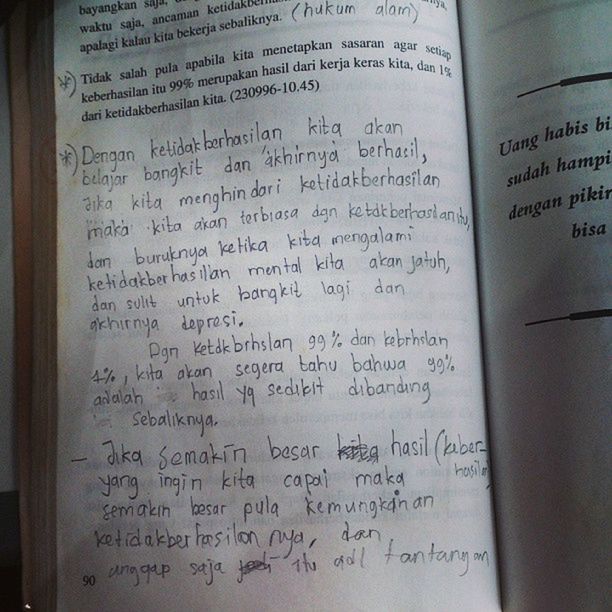 bayangkan saja,
waktu saja, ancaman
apalagi kalau kita bekerja sebaliknya. (hukum alam)
*) Tidak salah pula apabila kita menetapkan sasaran agar setiap
keberhasilan itu 99% merupakan hasil dari kerja keras kita, dan 1%
dari ketidakberhasilan kita. (230996-10.45)
*) Dengan ketidakberhasilan kita akan
belajar bangkit dan akhirnya berhasil,
Jika kita menghindari ketidakberhasilan
maka kita akan terbiasa dgn ketdkberhasilan itu,
dan buruknya ketika kita mengalami
ketidakberhasilan mental kita akan jatuh,
dan sulit untuk bangkit lagi dan
akhirnya depresi.
Dgn ketdkbrhslan 99% dan kebrhslan
1%, kita akan segera tahu bahwa 99%
adalah hasil yg sedikit dibanding
sebaliknya.
- Jika semakin besar hasil (keber-
hasilan)
yang ingin kita capai maka
semakin besar pula kemungkinan
ketidakberhasilan nya, dan
anggap saja itu adl tantangan
90
Uang habis bi
sudah hampi
dengan pikir
bisa